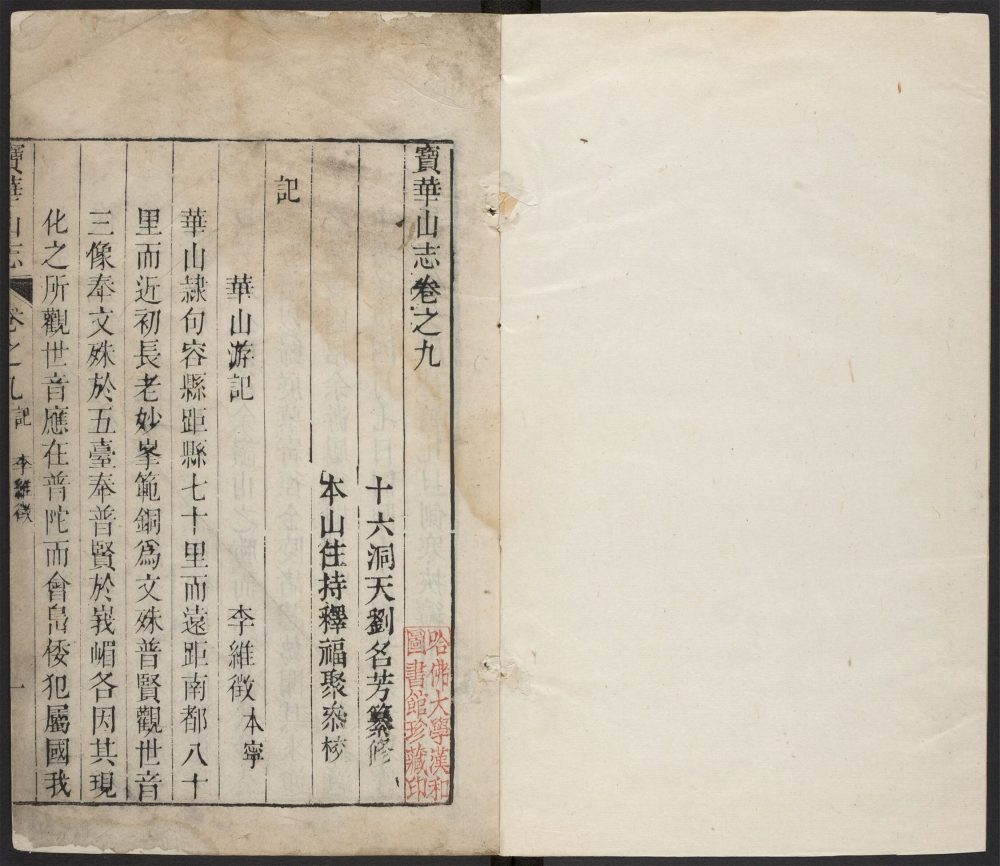 寶華山志卷之九
十六洞天劉名芳纂修
本山住持釋福聚叅校
記
華山游記
李維徵本寧
華山隷句容縣距縣七十里而遠距南都八十
里而近初長老妙峯範銅爲文殊普賢觀世音
三像奉文殊於五臺奉普賢於峩嵋各因其現
化之所觀世音應在普陀而會島倭犯屬國我
寶華山志
卷之九
記
李維徵
一
哈佛大學漢和
圖書館珍藏印